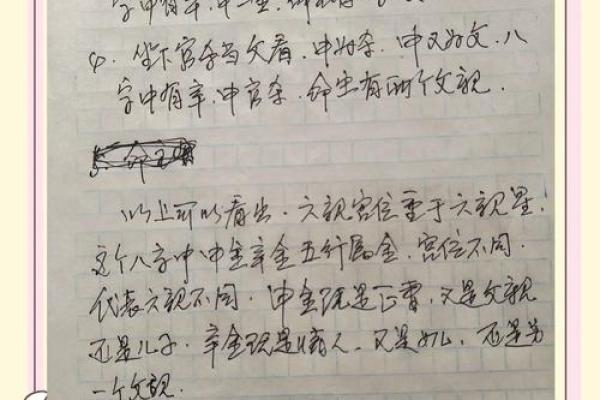 字中有辛、申一金,命
4. 坐下官杀当父看,申为杀,申又为父,八
字中有辛、申官杀,命主有两个父亲.
以上可以看出,六亲宫位重于六亲星,
这个八字中申金辛金五行属金,宫位不同,
代表六亲不同,申金既是正曹,又是父亲
还是儿子,辛金既是情人,又是女儿,还是另
一个父亲.